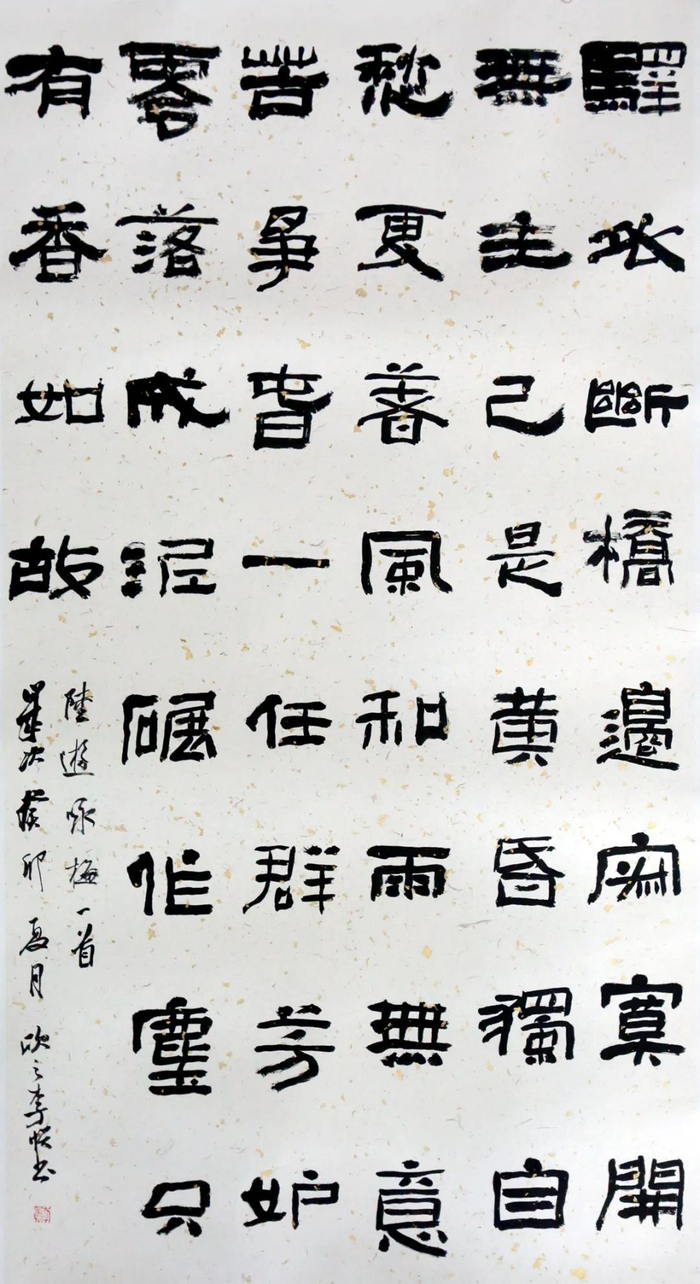 驛外斷橋邊寂寞開
無主已是黃昏獨自
愁更著風和雨無意
苦爭春一任群芳妒
零落成泥碾作塵只
有香如故
陸遊咏梅一首
歲次癸卯夏月